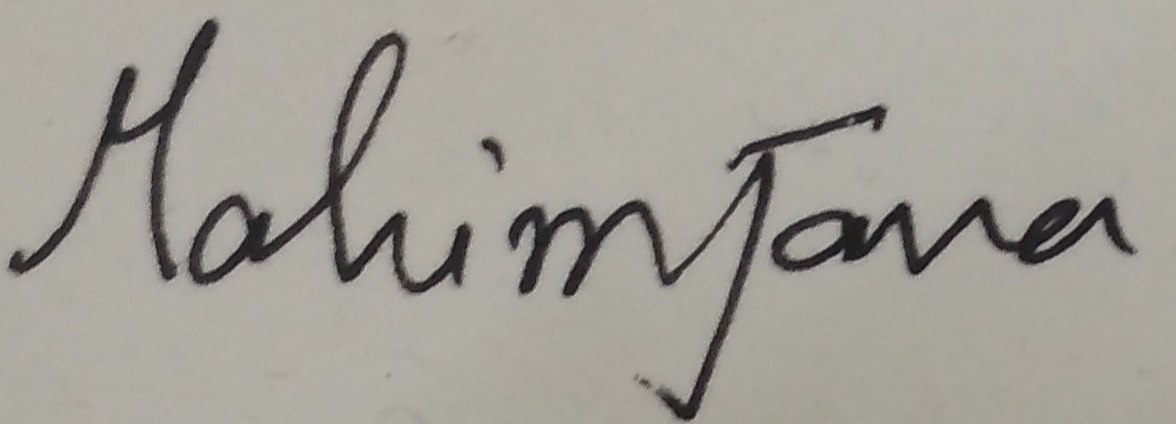 Mahim Jana